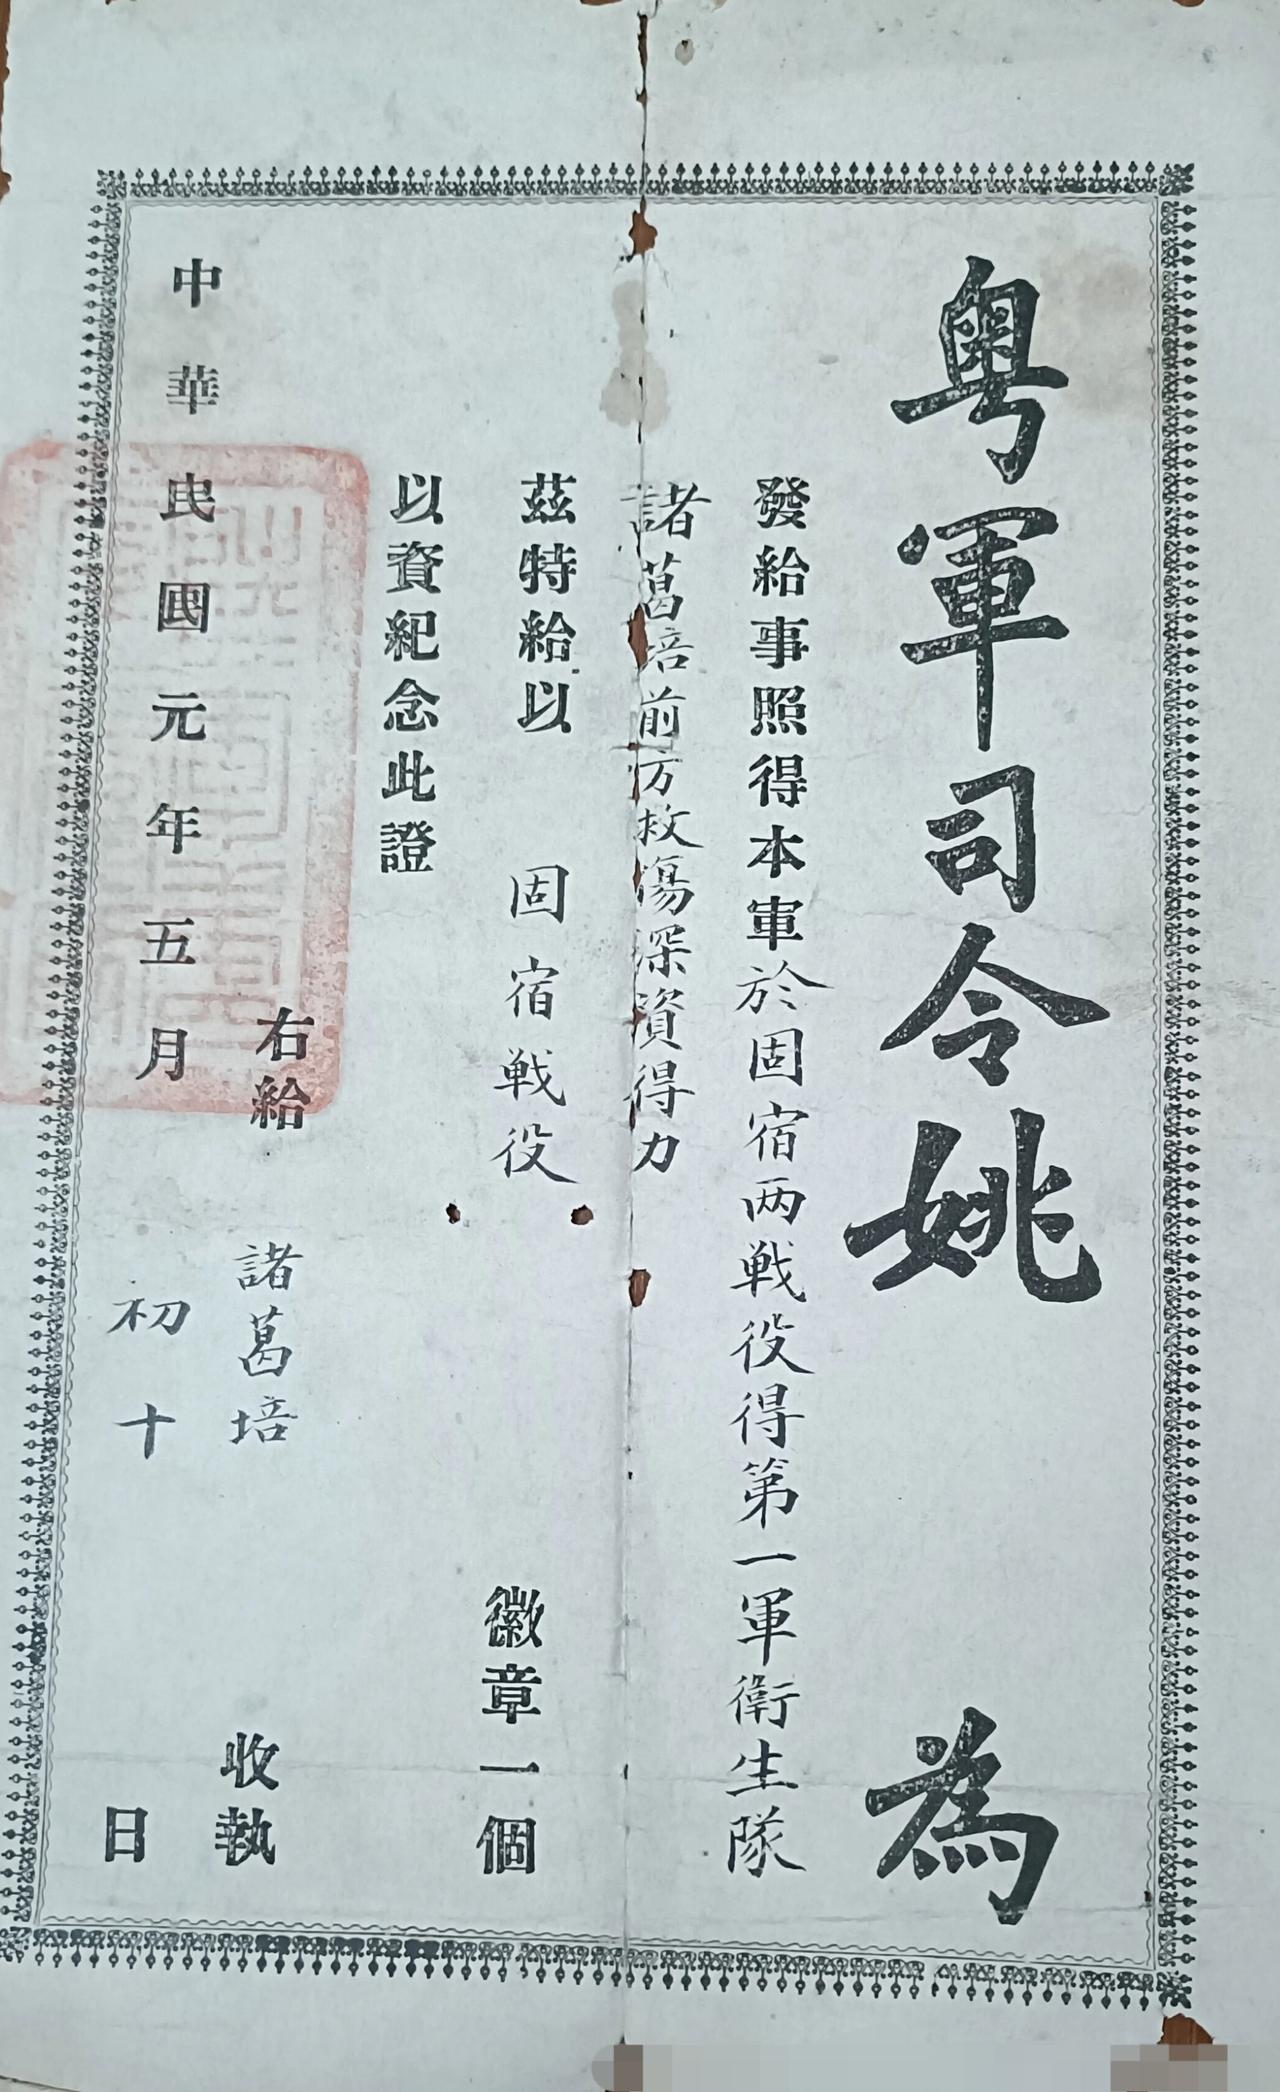 粤軍司令姚 為
發給事照得本軍於固宿两戦役得第一軍衛生隊
諸葛培前方救傷深資得力
茲特給以 固宿戦役 徽章一個
以資紀念此證
右給 諸葛培 收執
中華民國元年五月 初十 日